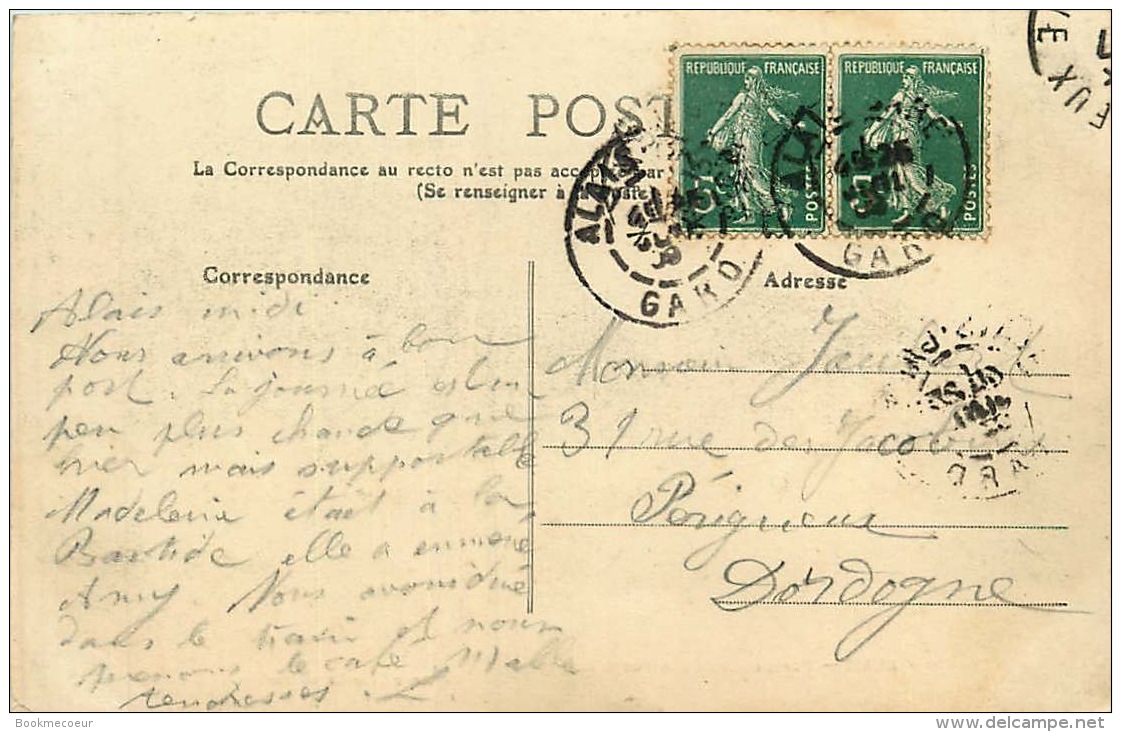 CARTE POST
La Correspondance au recto n'est pas acceptée par
(Se renseigner à la Poste)
REPUBLIQUE FRANÇAISE
POSTES
REPUBLIQUE FRANÇAISE
POSTES
ALAIS
GARD
ALAIS
GARD
EUX
Correspondance
Adresse
Alais midi
Nous arrivons à bon
port. La journée est un
peu plus chaude que
hier mais supportable
Madeleine était à la
Bastide elle a emmené
Any. Nous avons diné
dans le train et nous
prenons le café. Mille
tendresses. L.
Monsieur
31 rue des Jacobins
Périgueux
Dordogne
Bookmecoeur
delcampe.net